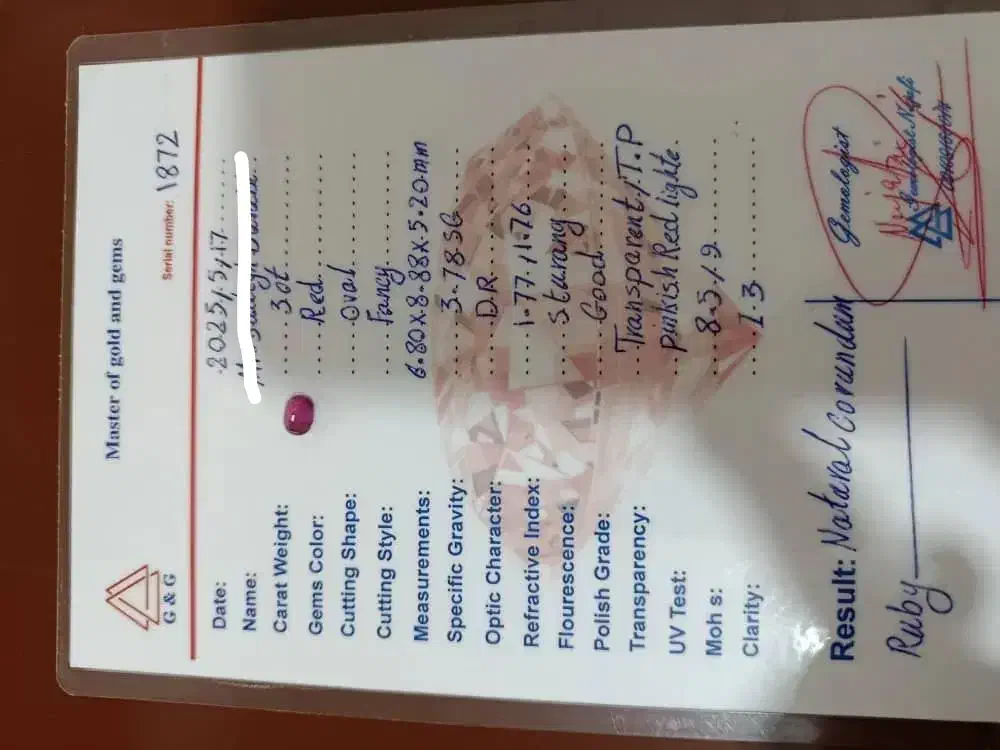 G & G
Master of gold and gems
Serial number: 1872
Date: 2025/5/17
Name:
Carat Weight: 3ct
Gems Color: Red
Cutting Shape: Oval
Cutting Style: Fancy
Measurements: 6.80x8.88x5.20mm
Specific Gravity: 3.78SG
Optic Character: D.R
Refractive Index: 1.77/1.76
Flourescence: Sturang
Polish Grade: Good
Transparency: Transparent/T.P
UV Test: Pinkish Red light
Moh s: 8.5/9
Clarity: I.3
Result: Nataral Corundam
Ruby
Gemalogist